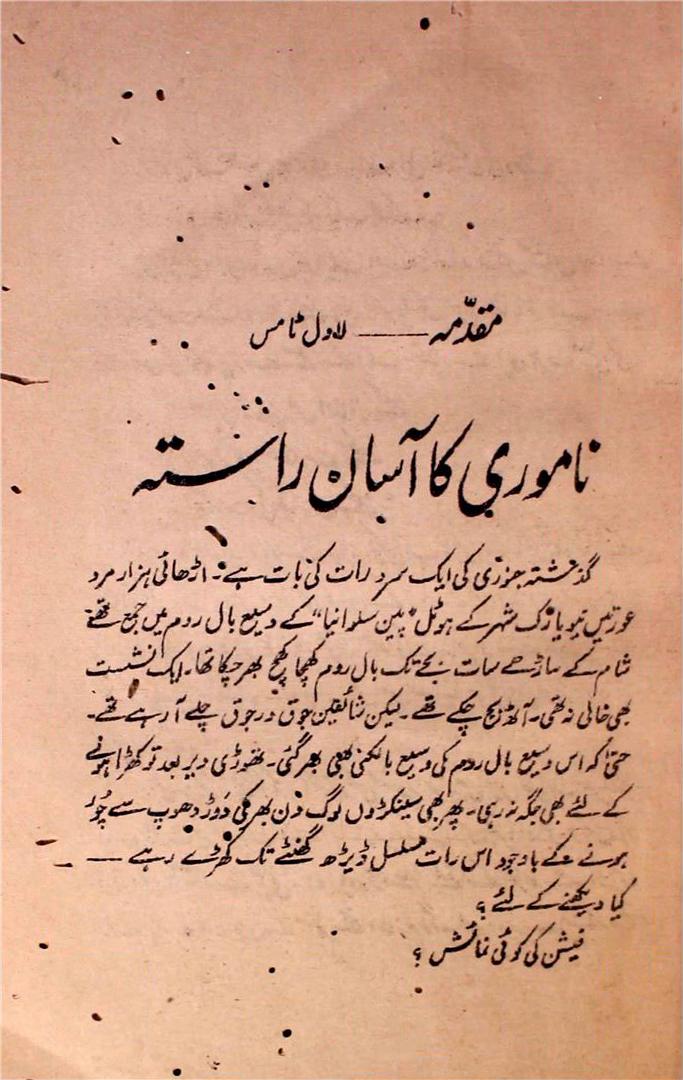 مقدّمہ —— لاول ٹامس
ناموری کا آسان راستہ
گذشتہ جنوری کی ایک سرد رات کی بات ہے۔ اڑھائی ہزار مرد
عورتیں نیویارک شہر کے ہوٹل "پین سلوانیا" کے وسیع بال روم میں جمع تھے
شام کے ساڑھے سات بجے تک بال روم کھچا کھچ بھر چکا تھا۔ ایک نشست
بھی خالی نہ تھی۔ آٹھ بج چکے تھے۔ لیکن شائقین جوق در جوق چلے آ رہے تھے۔
حتیٰ کہ اس وسیع بال روم کی وسیع بالکنی بھی بھر گئی۔ تھوڑی دیر بعد تو کھڑا ہونے
کے لئے بھی جگہ نہ رہی۔ پھر بھی سینکڑوں لوگ دن بھر کی دَوڑ دھوپ سے چُور
ہونے کے باوجود اس رات مسلسل ڈیڑھ گھنٹے تک کھڑے رہے ——
کیا دیکھنے کے لئے ؟
فیشن کی کوئی نمائش ؟